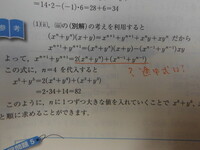 =14·2−(−1)·6=28+6=34
の(別解)の考えを利用すると
(xⁿ+yⁿ)(x+y)=xⁿ⁺¹+yⁿ⁺¹+xⁿy+xyⁿ だから
xⁿ⁺¹+yⁿ⁺¹=(xⁿ+yⁿ)(x+y)−(xⁿ⁻¹+yⁿ⁻¹)xy
よって, xⁿ⁺¹+yⁿ⁺¹=2(xⁿ+yⁿ)+(xⁿ⁻¹+yⁿ⁻¹)
この式に, n=4 を代入すると
x⁵+y⁵=2(x⁴+y⁴)+(x³+y³)
=2·34+14=82
このように, n に1つずつ大きな値を入れていくことで
と順に求めることができます.